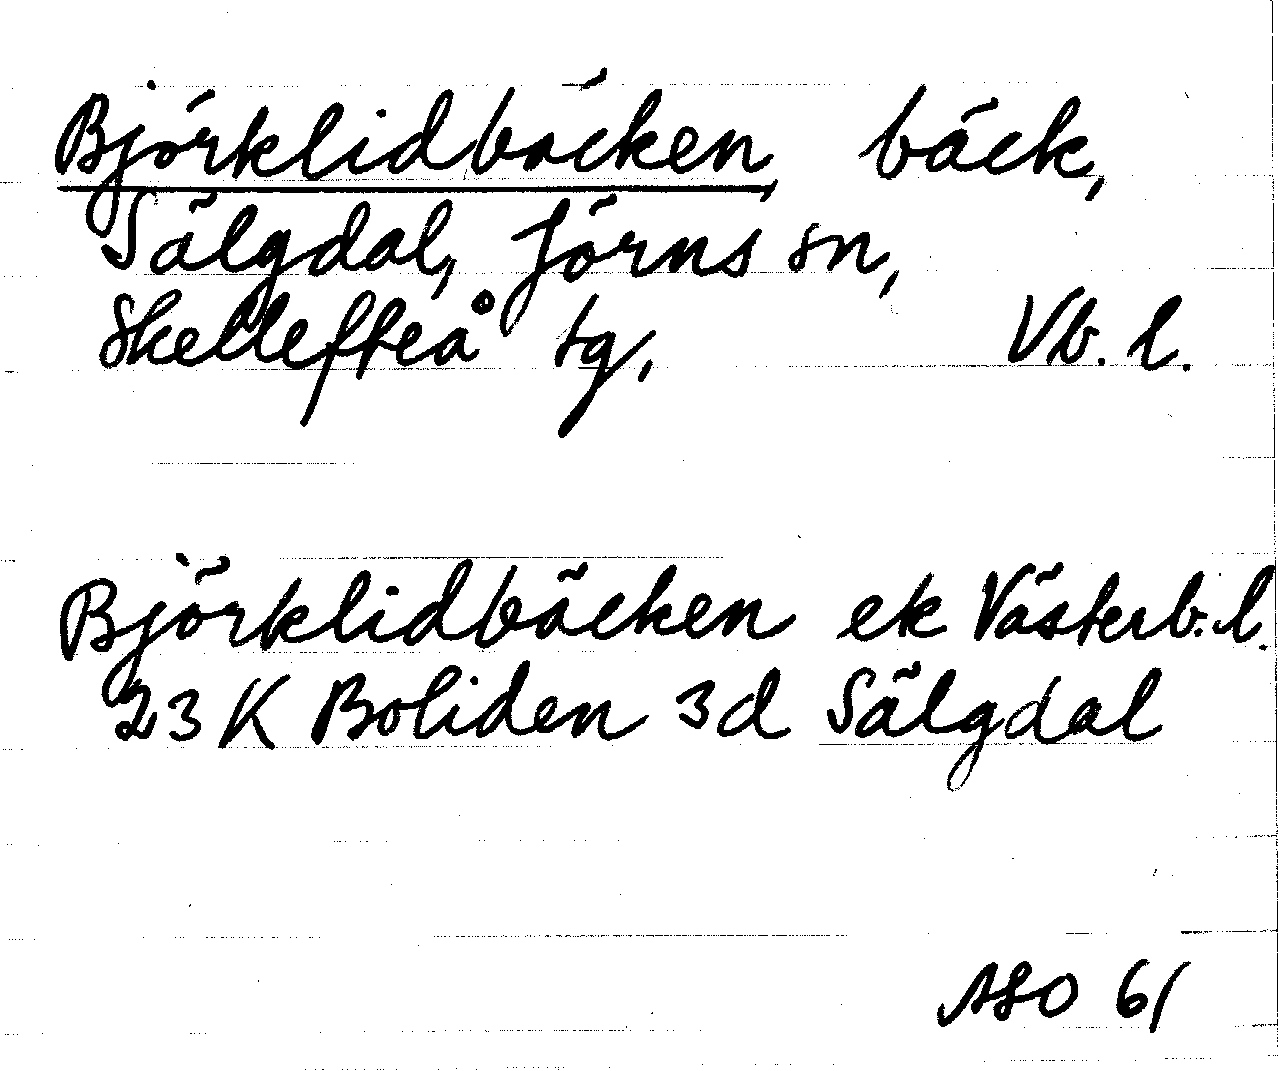 Björklidbäcken, bäck,
Sälgdal, Jörns sn,
Skellefteå tg, Vb. l.
Björklidbäcken ek Västerb. l.
23 K Boliden 3d Sälgdal
ASO 61